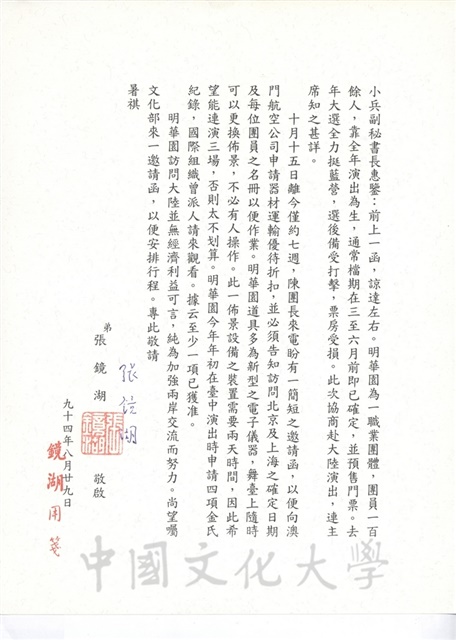 小兵副秘書長惠鑒：前上一函，諒達左右。明華園為一職業團體，團員一百
餘人，靠全年演出為生，通常檔期在三至六月前即已確定，並預售門票。去
年大選全力挺藍營，選後備受打擊，票房受損。此次協商赴大陸演出，連主
席知之甚詳。
十月十五日離今僅約七週，陳團長來電盼有一簡短之邀請函，以便向澳
門航空公司申請器材運輸優待折扣，並必須告知訪問北京及上海之確定日期
及每位團員之名冊以便作業。明華園道具多為新型之電子儀器，舞臺上隨時
可以更換佈景，不必有人操作。此一佈景設備之裝置需要兩天時間，因此希
望能連演三場，否則太不划算。明華園今年年初在臺中演出時申請四項金氏
紀錄，國際組織曾派人請來觀看。據云至少一項已獲准。
明華園訪問大陸並無經濟利益可言，純為加強兩岸交流而努力。尚望囑
文化部來一邀請函，以便安排行程。專此敬請
暑祺
弟
張鏡湖 敬啟
張鏡湖
九十四年八月廿九日
鏡湖用箋
中國文化大學